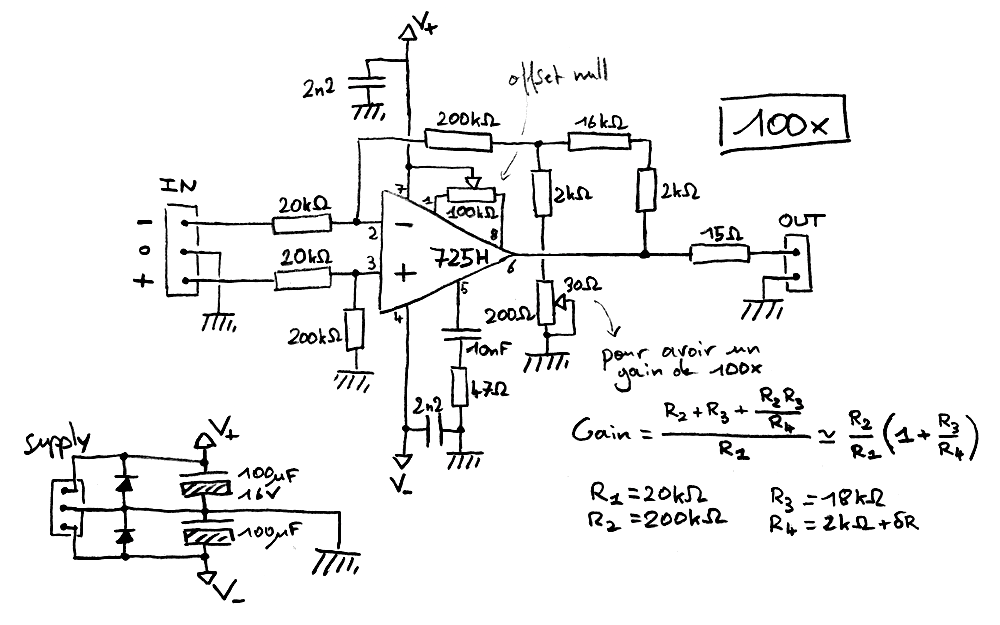 V+
2n2
offset null
200kΩ
16kΩ
100x
IN
-
0
+
20kΩ
20kΩ
200kΩ
7
1
100kΩ
8
2
-
3
+
725H
6
5
4
2kΩ
2kΩ
15Ω
OUT
30Ω
200Ω
pour avoir un
gain de 100x
10nF
47Ω
2n2
V-
supply
V+
100µF
16V
100µF
V-
Gain = (R2 + R3 + R2R3/R4) / R1 ≃ R2/R1 (1 + R3/R4)
R1 = 20kΩ R3 = 18kΩ
R2 = 200kΩ R4 = 2kΩ + δR